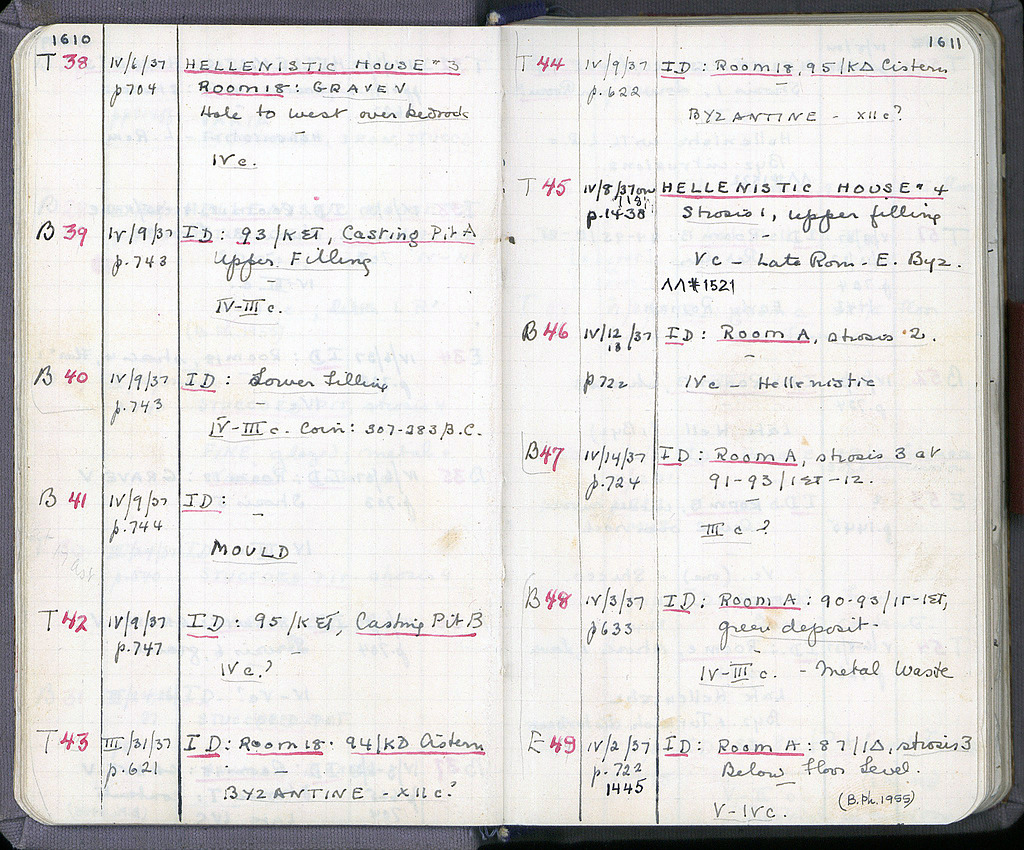 1610
T 38 IV/6/37 HELLENISTIC HOUSE # 3
p704 ROOM 18: GRAVE V
Hole to west over bedrock
IVc.
B 39 IV/9/37 ID: 93/ΚΕΤ, Casting Pit A
p.743 Upper Filling
IV-IIIc.
B 40 IV/9/37 ID: Lower Filling
p.743
IV-IIIc. Coin: 307-283/B.C.
B 41 IV/9/37 ID:
p.744
MOULD
T 42 IV/9/37 ID: 95/ΚΕΤ, Casting Pit B
p.747
IVc.?
T 43 III/31/37 ID: Room 18. 94/ΚΔ Cistern
p.621
BYZANTINE - XIIc?
1611
T 44 IV/9/37 ID: Room 18, 95/ΚΔ Cistern
p.622
BYZANTINE - XIIc?
T 45 IV/8/37 on HELLENISTIC HOUSE # 4
p.1438 Strosis 1, upper filling
Vc - Late Rom. - E. Byz.
ΛΛ#1521
B 46 IV/12/37 ID: Room A, strosis 2.
13
p722 IVc - Hellenistic
B 47 IV/14/37 ID: Room A, strosis 3 at
p.724 91-93/ΙΣΤ-ΙΖ.
IIIc?
B 48 IV/3/37 ID: Room A: 90-93/ΙΓ-ΙΣΤ,
p633 green deposit-
IV-IIIc. - Metal Waste
E 49 IV/2/37 ID: Room A: 87/ΙΔ, strosis 3
p.722 Below floor level.
1445
(B.Ph.1955)
V-IVc.